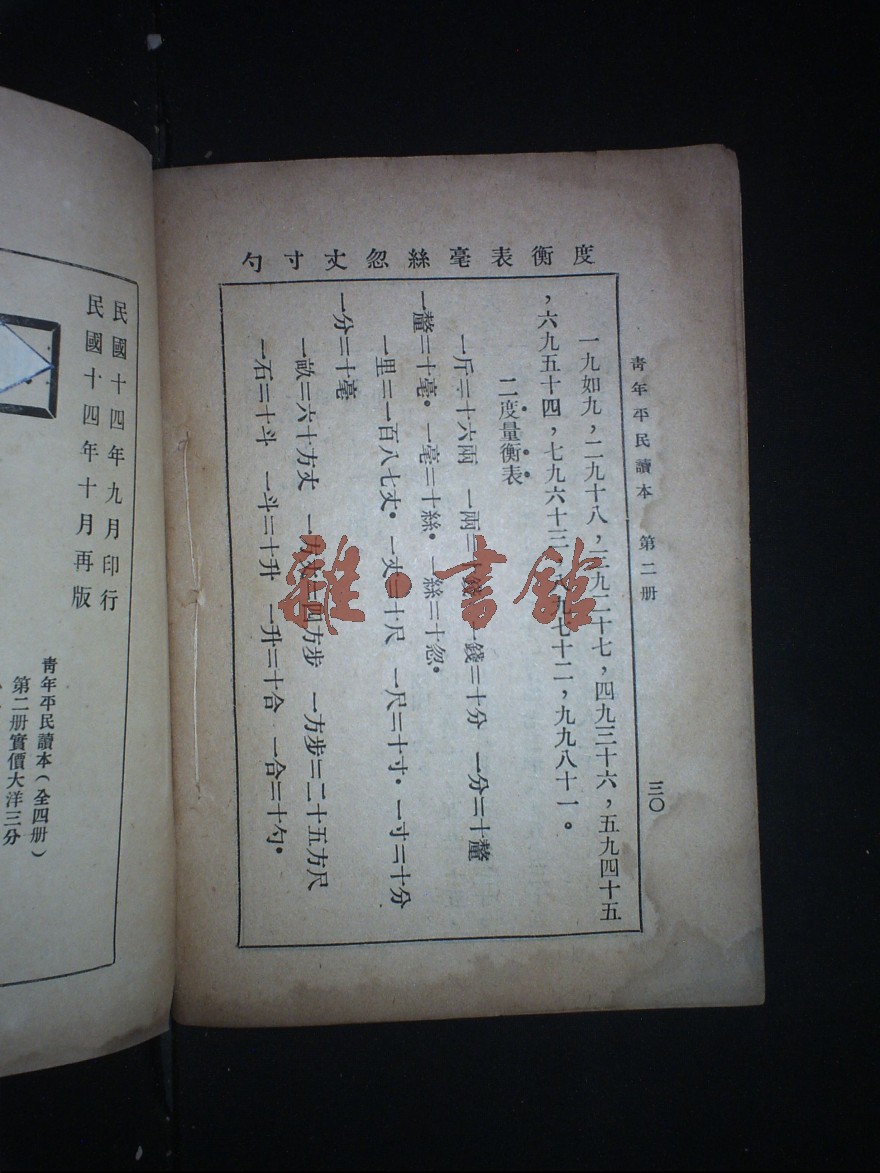 青年平民讀本 第二册 三〇
度衡表毫絲忽丈寸勺
一九如九，二九十八，三九二十七，四九三十六，五九四十五
，六九五十四，七九六十三，八九七十二，九九八十一。
二度量衡表
一斤=十六兩 一兩=十錢 一錢=十分 一分=十釐
一釐=十毫。一毫=十絲。一絲=十忽。
一里=一百八七丈。一丈=十尺 一尺=十寸。一寸=十分
一分=十毫
一畝=六十方丈 一方丈=四方步 一方步=二十五方尺
一石=十斗 一斗=十升 一升=十合 一合=十勺。
民國十四年九月印行
民國十四年十月再版
青年平民讀本（全四册）
第二册實價大洋三分
雜·書館